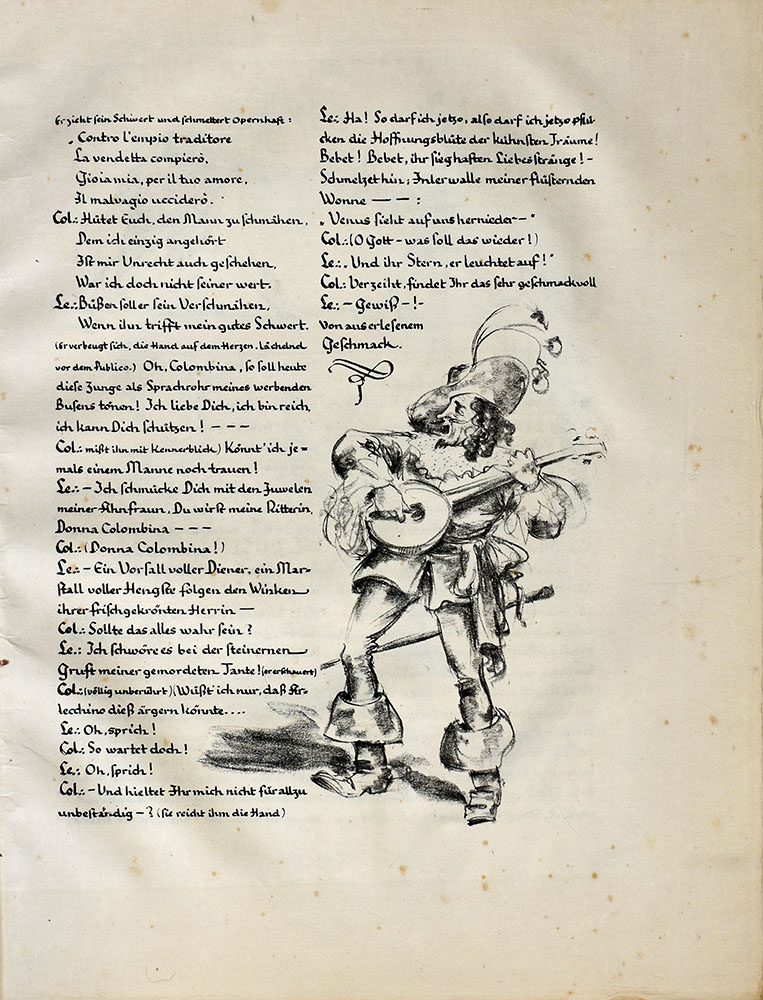 (Er zieht sein Schwert und schmettert opernhaft:
„Contro l'empio traditore
La vendetta compierò,
Gioia mia, per il tuo amore,
Il malvagio ucciderò."
Col.: Hütet Euch, den Mann zu schmähen,
Dem ich einzig angehört
Ist mir Unrecht auch geschehen,
War ich doch nicht seiner wert.
Le.: Büßen soll er sein Verschmähen,
Wenn ihn trifft mein gutes Schwert.
(Er verbeugt sich, die Hand auf dem Herzen. Lächelnd
vor dem Publico.) Oh, Colombina, so soll heute
diese Zunge als Sprachrohr meines werbenden
Busens tönen! Ich liebe Dich, ich bin reich,
ich kann Dich schützen! – – –
Col.: mißt ihn mit Kennerblick) Könnt' ich je=
mals einem Manne noch trauen!
Le.: – Ich schmücke Dich mit den Juwelen
meiner Ahnfraun, Du wirst meine Ritterin,
Donna Colombina – – –
Col.: (Donna Colombina!)
Le.: – Ein Vorsall voller Diener, ein Mar=
stall voller Hengste folgen den Winken
ihrer frischgekrönten Herrin –
Col.: Sollte das alles wahr sein?
Le.: Ich schwöre es bei der steinernen
Gruft meiner gemordeten Tante! (er erschauert)
Col.: (völlig unberührt) (Wüßt' ich nur, daß Ar=
lecchino dieß ärgern könnte....
Le.: Oh, sprich!
Col.: So wartet doch!
Le.: Oh, sprich!
Col.: – Und hieltet Ihr mich nicht für allzu
unbeständig – ? (sie reicht ihm die Hand)
Le.: Ha! So darf ich jetzo, also darf ich jetzo pflü=
cken die Hoffnungsblüte der kühnsten Träume!
Bebet! Bebet, ihr sieghaften Liebesstränge! –
Schmelzet hin; Inderwalle meiner flüsternden
Wonne — — :
„Venus sieht auf uns hernieder –"
Col.: (O Gott – was soll das wieder!)
Le.: „Und ihr Stern, er leuchtet auf!"
Col.: Verzeiht, findet Ihr das sehr geschmackvoll
Le.: – Gewiß – ! –
Von auserlesenem
Geschmack.